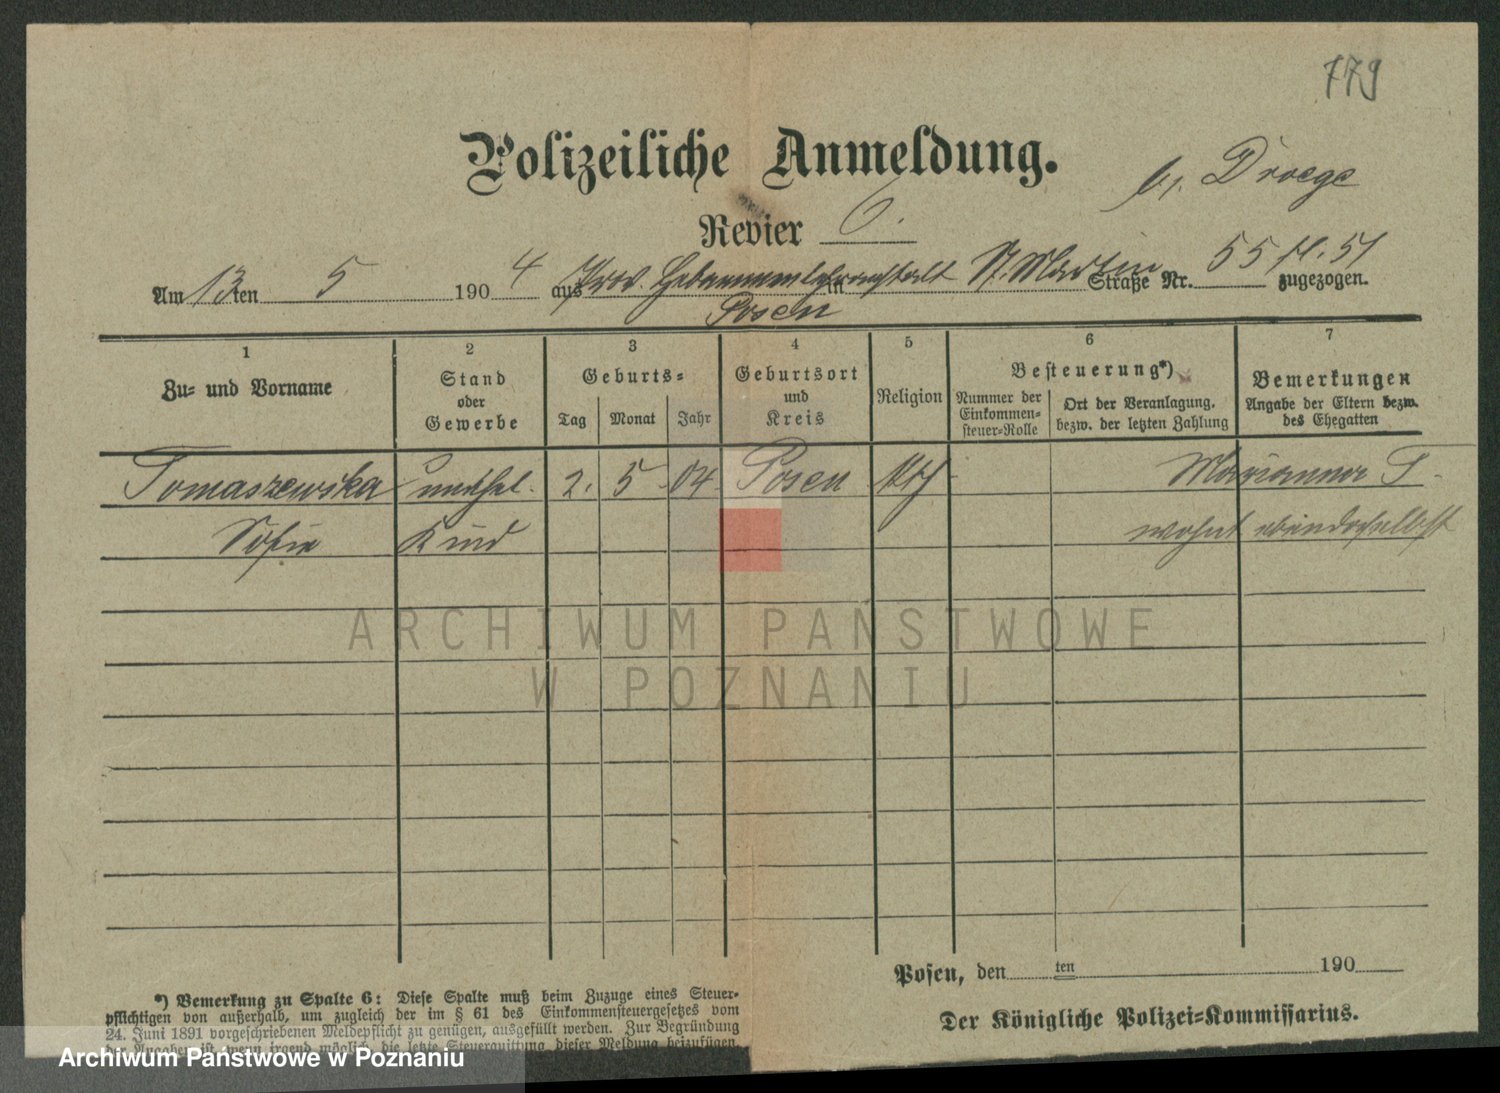 779
Polizeiliche Anmeldung.
b. Droege
Revier 6.
Am 13 ten 5 190 4 aus Prov. Hebammenlehranstalt in St. Martin Straße Nr. 55 fl. 51 zugezogen.
Posen
1 2 3 4 5 6 7
Zu- und Vorname
Stand oder Gewerbe
Geburts-
Tag Monat Jahr
Geburtsort und Kreis
Religion
Besteuerung*)
Nummer der Einkommen-steuer-Rolle
Ort der Veranlagung, bezw. der letzten Zahlung
Bemerkungen
Angabe der Eltern bezw. des Ehegatten
Tomaszewska unehel. 2. 5 04 Posen kth Marianna T
Sofie Kind wohnt ebendaselbst
ARCHIWUM PAŃSTWOWE
W POZNANIU
Posen, den ten 190
Der Königliche Polizei-Kommissarius.
*) Bemerkung zu Spalte 6: Diese Spalte muß beim Zuzuge eines Steuer-
pflichtigen von außerhalb, um zugleich der im § 61 des Einkommensteuergesetzes vom
24. Juni 1891 vorgeschriebenen Meldepflicht zu genügen, ausgefüllt werden. Zur Begründung
der Angaben ist, wenn irgend möglich, die letzte Steuerquittung dieser Meldung beizufügen.
Archiwum Państwowe w Poznaniu